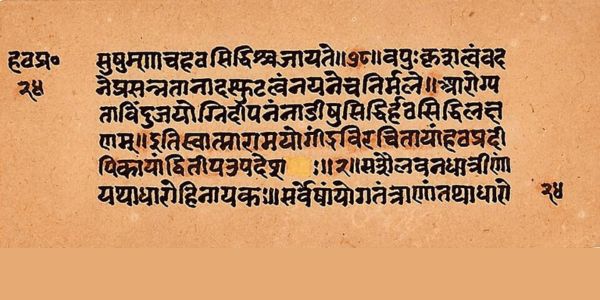 हठप्र० सुषुम्णाचहठसिद्धिश्चजायते॥७८॥वपुःकृशत्वंवद
२४ नेप्रसन्नतानादस्फुटत्वंनयनेचनिर्मले॥आरोग्य
ताबिंदुजयोग्निदीपनंनाडीषुसिद्धिर्हठसिद्धिलक्ष
णम्॥इतिस्वात्मारामयोगींद्रविरचितायांहठप्रदी
पिकायांद्वितीयउपदेशः॥२॥सशैलवनधात्रीणां
यथाधारोहिनायकः॥सर्वेषांयोगतंत्राणांतथाधारो २४